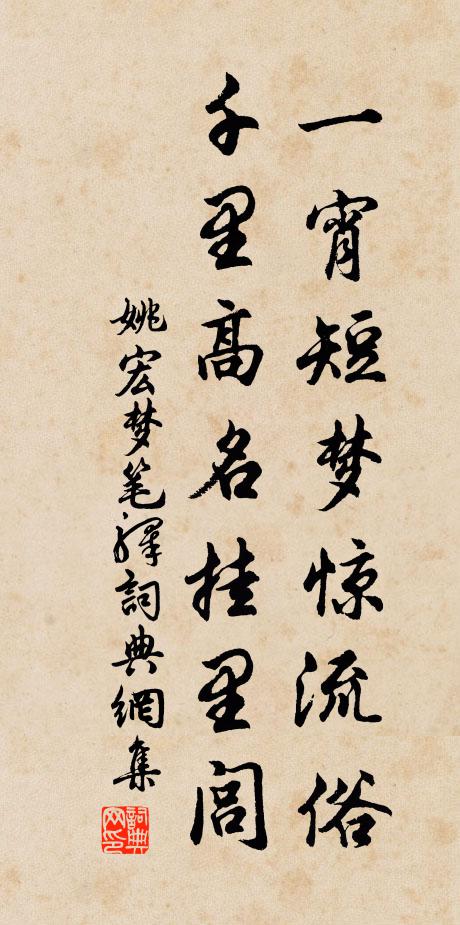 一宵短梦惊流俗
千里高名挂里闾
姚宏梦笔驿詞典網集
詞典
网印